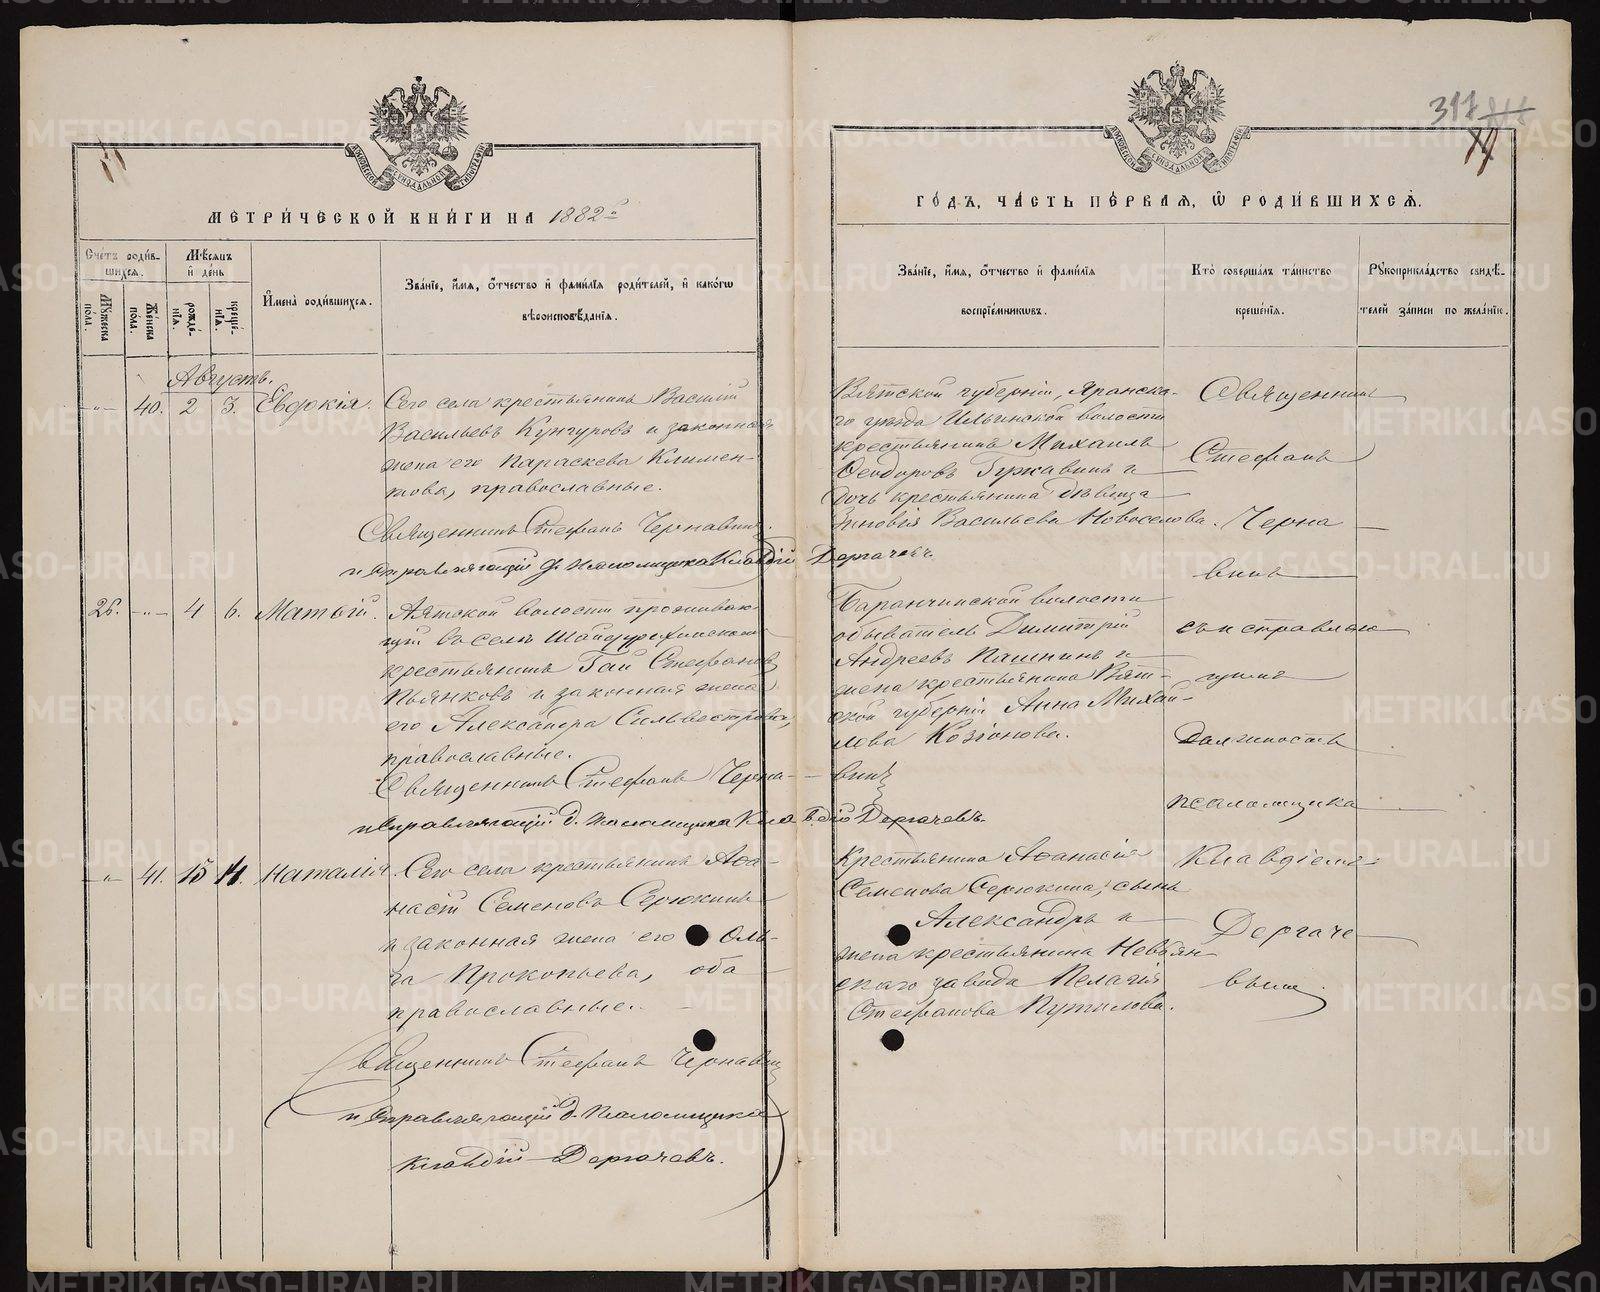 МЕТРИЧЕСКОЙ КНИГИ НА 1882 г.
Счетъ родившихся.
Мужеска пола.
Женска пола.
Мѣсяцъ и день
рожденія.
крещенія.
Имена родившихся.
Званіе, имя, отчество и фамилія родителей, и какогѡ
вѣроисповѣданія.
Августъ.
-"- 40. 2 3. Евдокія.
Сего села крестьянинъ Василій
Васильевъ Кунгуровъ и законная
жена его Параскева Климен-
това, православные.
Священникъ Стефанъ Чернавинъ.
Исправляющій д. псаломщика Клавдій Дергачевъ
26. -"- 4 6. Матѳій.
Аятской волости проживаю-
щій въ селѣ Шайдурихинскомъ
крестьянинъ Гаій Стефановъ
Пьянковъ и законная жена
его Александра Сильвестрова,
православные.
Священникъ Стефанъ Черна-
винъ
Исправляющій д. псаломщика Клавдій Дергачевъ.
-"- 41. 15 Наталія.
Сего села крестьянинъ Аѳа-
насій Семеновъ Серюкинъ
и законная жена его Оль-
га Прокопьева, оба
православные.
Священникъ Стефанъ Чернавинъ
Исправляющій д. псаломщика
Клавдій Дергачевъ.
317
ГОДЪ, ЧАСТЬ ПЕРВАЯ, Ѡ РОДИВШИХСЯ.
Званіе, имя, отчество и фамилія
воспріемниковъ.
Кто совершалъ таинство
крещенія.
Рукоприкладство свидѣ-
телей записи по желанію.
Вятской губерніи, Яранска-
го уѣзда Ильинской волости
крестьянинъ Михаилъ
Ѳеодоровъ и
дочь крестьянина дѣвица
Зиновія Васильева Новоселова.
Баранчинской волости
обыватель Димитрій
Андреевъ Пашнинъ и
жена крестьянина Вят-
ской губерніи Анна Михай-
лова Козіонова.
Крестьянина Аѳанасія
Семенова Серюкина, сынъ
Александръ и
жена крестьянина Невьян
скаго завода Пелагія
Стефанова Путилова.
Священникъ
Стефанъ
Черна
винъ
съ исправляю
щимъ
должность
псаломщика
Клавдіемъ
Дергаче
вымъ.
METRIKI.GASO-URAL.RU